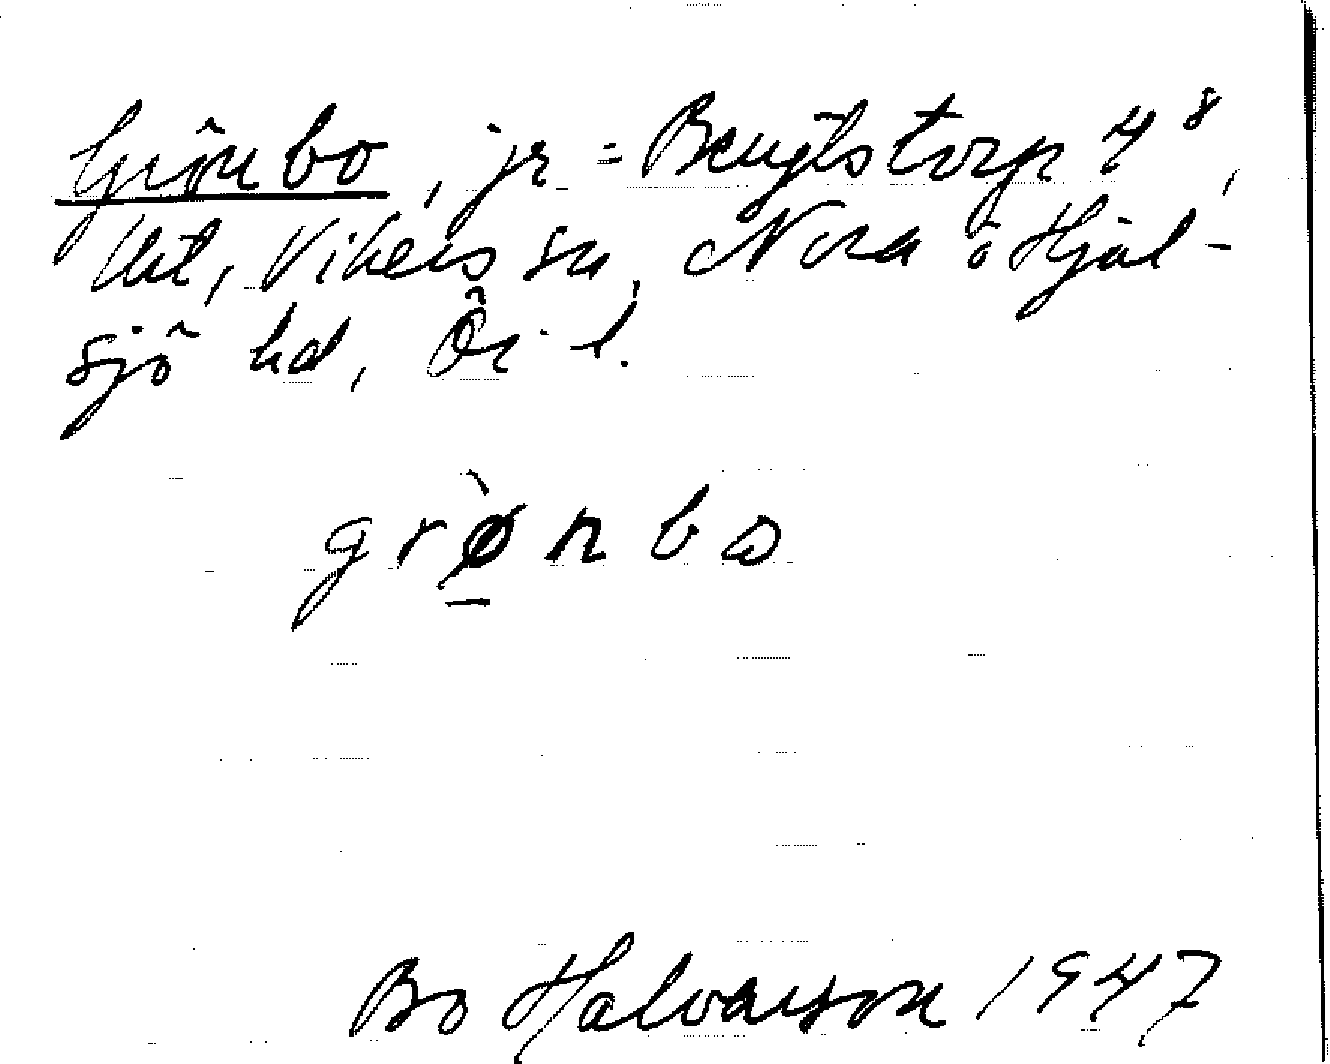 Grönbo, jr = Bengtstorp 4⁸,
Vikers sn, Nora o Hjul-
sjö hd, Ör l.
grø̀nbo
Bo Halvarson 1947